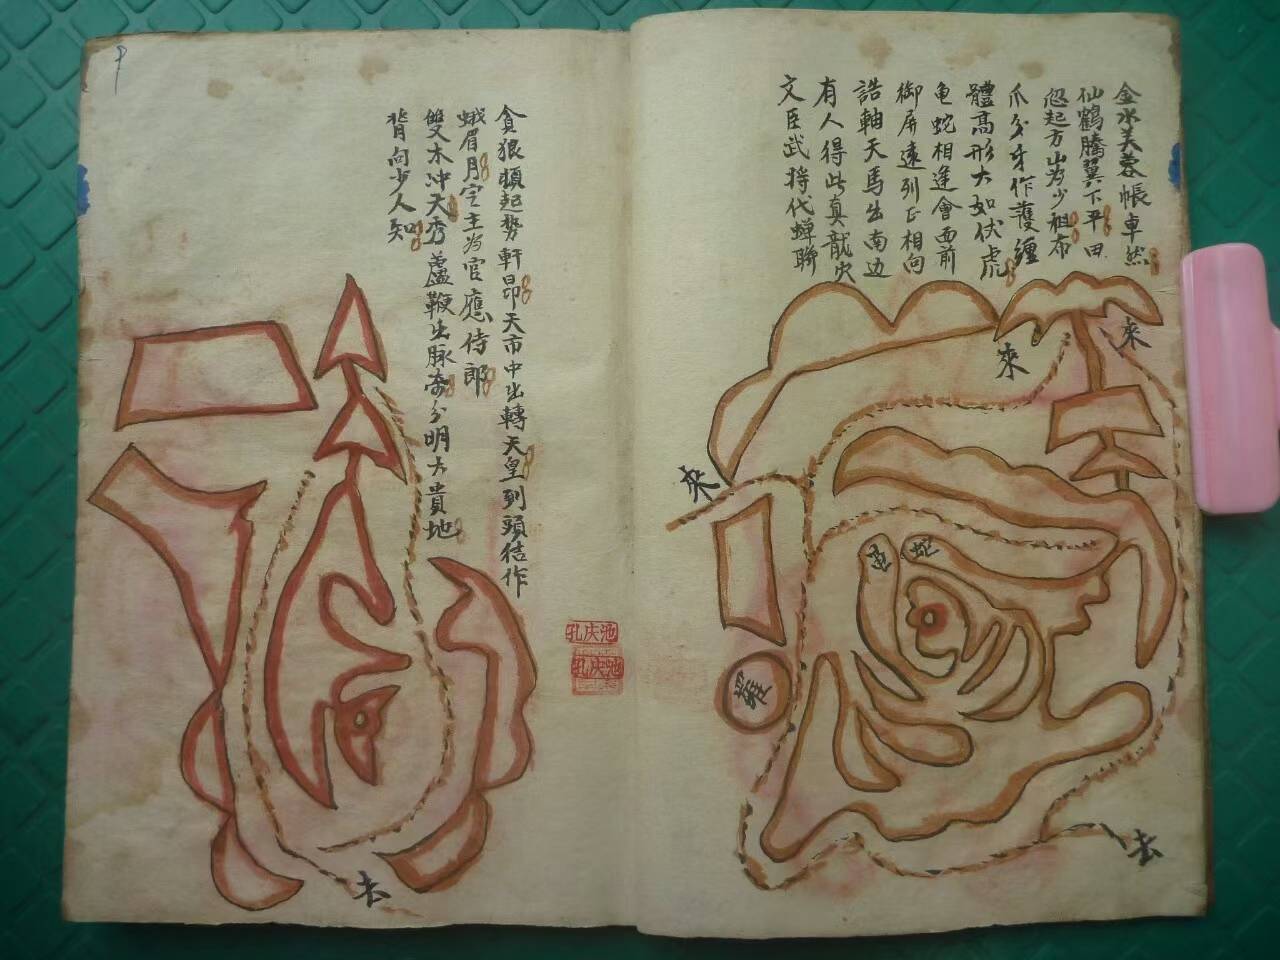 金水芙蓉帳卓然
仙鶴騰翼下平田
忽起方山为少祖布
爪分牙作護纏
體高形大如伏虎
龟蛇相逢會面前
御屏遠列正相向
誥軸天馬出南边
有人得此真龍穴
文臣武将代蟬聯
來
來
來
龟
蛇
羅
去
貪狼頓起勢軒昂天市中出轉天皇到頭结作
蛾眉月宰主为官應侍郎
雙木冲天秀蘆鞭出脉奇分明大貴地
背向少人知
去
孔庆池
孔庆池